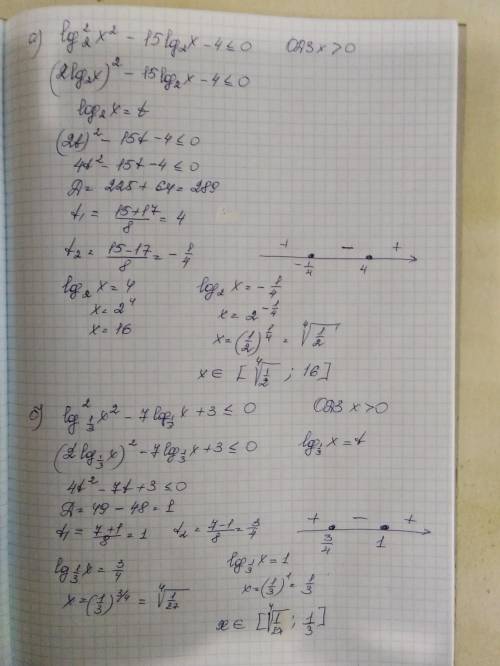 а) log₂² x² - 15log₂x - 4 ≤ 0 ОДЗ x > 0
(2log₂x)² - 15log₂x - 4 ≤ 0
log₂x = t
(2t)² - 15t - 4 ≤ 0
4t² - 15t - 4 ≤ 0
Д = 225 + 64 = 289
t₁ = (15+17)/8 = 4
t₂ = (15-17)/8 = -1/4
+ - +
-1/4 4
log₂x = 4 log₂x = -1/4
x = 2⁴ x = 2^(-1/4)
x = 16 x = (1/2)^(1/4) = ⁴√(1/2)
x ∈ [⁴√(1/2) ; 16]
б) log²_(1/3) x² - 7log_(1/3) x + 3 ≤ 0 ОДЗ x > 0
(2log_(1/3) x)² - 7log_(1/3) x + 3 ≤ 0 log_(1/3) x = t
4t² - 7t + 3 ≤ 0
Д = 49 - 48 = 1
t₁ = (7+1)/8 = 1 t₂ = (7-1)/8 = 3/4
+ - +
3/4 1
log_(1/3) x = 3/4 log_(1/3) x = 1
x = (1/3)^(3/4) = ⁴√(1/27) x = (1/3)¹ = 1/3
x ∈ [⁴√(1/27) ; 1/3]